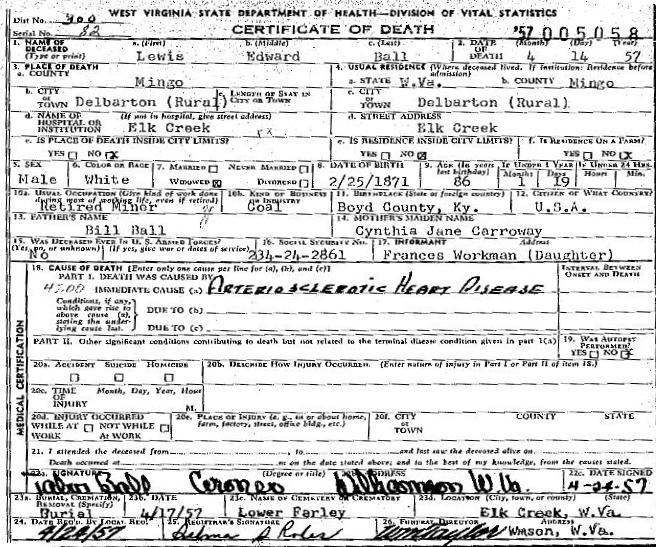 WEST VIRGINIA STATE DEPARTMENT OF HEALTH—DIVISION OF VITAL STATISTICS
Dist No. 300
Serial No. 82 CERTIFICATE OF DEATH '57 005058
1. NAME OF DECEASED (Type or print) a. (First) b. (Middle) c. (Last) 2. DATE OF DEATH (Month) (Day) (Year)
Lewis Edward Ball 4 14 57
3. PLACE OF DEATH 4. USUAL RESIDENCE (Where deceased lived. If institution: Residence before admission)
a. COUNTY Mingo a. STATE W.Va. b. COUNTY Mingo
b. CITY OR TOWN Delbarton (Rural) c. LENGTH OF STAY IN CITY OR TOWN c. CITY OR TOWN Delbarton (Rural)
d. NAME OF HOSPITAL OR INSTITUTION (If not in hospital, give street address) Elk Creek d. STREET ADDRESS Elk Creek
e. IS PLACE OF DEATH INSIDE CITY LIMITS? e. IS RESIDENCE INSIDE CITY LIMITS? f. IS RESIDENCE ON A FARM?
YES NO X YES NO X YES NO X
5. SEX 6. COLOR OR RACE 7. MARRIED NEVER MARRIED 8. DATE OF BIRTH 9. AGE (In years last birthday) IF UNDER 1 YEAR IF UNDER 24 HRS.
Months Days Hours Min.
Male White WIDOWED X DIVORCED 2/25/1871 86 1 19
10a. USUAL OCCUPATION (Give kind of work done during most of working life, even if retired) 10b. KIND OF BUSINESS OR INDUSTRY 11. BIRTHPLACE (State or foreign country) 12. CITIZEN OF WHAT COUNTRY?
Retired Minor Coal Boyd County, Ky. U.S.A.
13. FATHER'S NAME 14. MOTHER'S MAIDEN NAME
Bill Ball Cynthia Jane Carroway
15. WAS DECEASED EVER IN U. S. ARMED FORCES? 16. SOCIAL SECURITY NO. 17. INFORMANT Address
(Yes, no, or unknown) (If yes, give war or dates of service)
No 234-24-2861 Frances Workman (Daughter)
18. CAUSE OF DEATH [Enter only one cause per line for (a), (b), and (c)] INTERVAL BETWEEN ONSET AND DEATH
PART I. DEATH WAS CAUSED BY:
4200 IMMEDIATE CAUSE (a) ARTERIOSCLEROTIC HEART DISEASE
Conditions, if any, which gave rise to above cause (a), stating the underlying cause last.
DUE TO (b)
DUE TO (c)
PART II. Other significant conditions contributing to death but not related to the terminal disease condition given in part I(a) 19. WAS AUTOPSY PERFORMED?
YES NO X
MEDICAL CERTIFICATION
20a. ACCIDENT SUICIDE HOMICIDE 20b. DESCRIBE HOW INJURY OCCURRED. (Enter nature of injury in Part I or Part II of item 18.)
20c. TIME OF INJURY Month, Day, Year, Hour M.
20d. INJURY OCCURRED 20e. PLACE OF INJURY (e. g., in or about home, farm, factory, street, office bldg., etc.) 20f. CITY OR TOWN COUNTY STATE
WHILE AT WORK NOT WHILE AT WORK
21. I attended the deceased from to and last saw the deceased alive on
Death occurred at m on the date stated above; and to the best of my knowledge, from the causes stated.
22a. SIGNATURE (Degree or title) ADDRESS 22c. DATE SIGNED
Ball Coroner Williamson W Va. 4-24-57
23a. BURIAL, CREMATION, REMOVAL (Specify) 23b. DATE 23c. NAME OF CEMETERY OR CREMATORY 23d. LOCATION (City, town, or county) (State)
Burial 4/17/57 Lower Farley Elk Creek, W.Va.
24. DATE REC'D. BY LOCAL REG. 25. REGISTRAR'S SIGNATURE 26. FUNERAL DIRECTOR ADDRESS
4/24/57 W.Va.